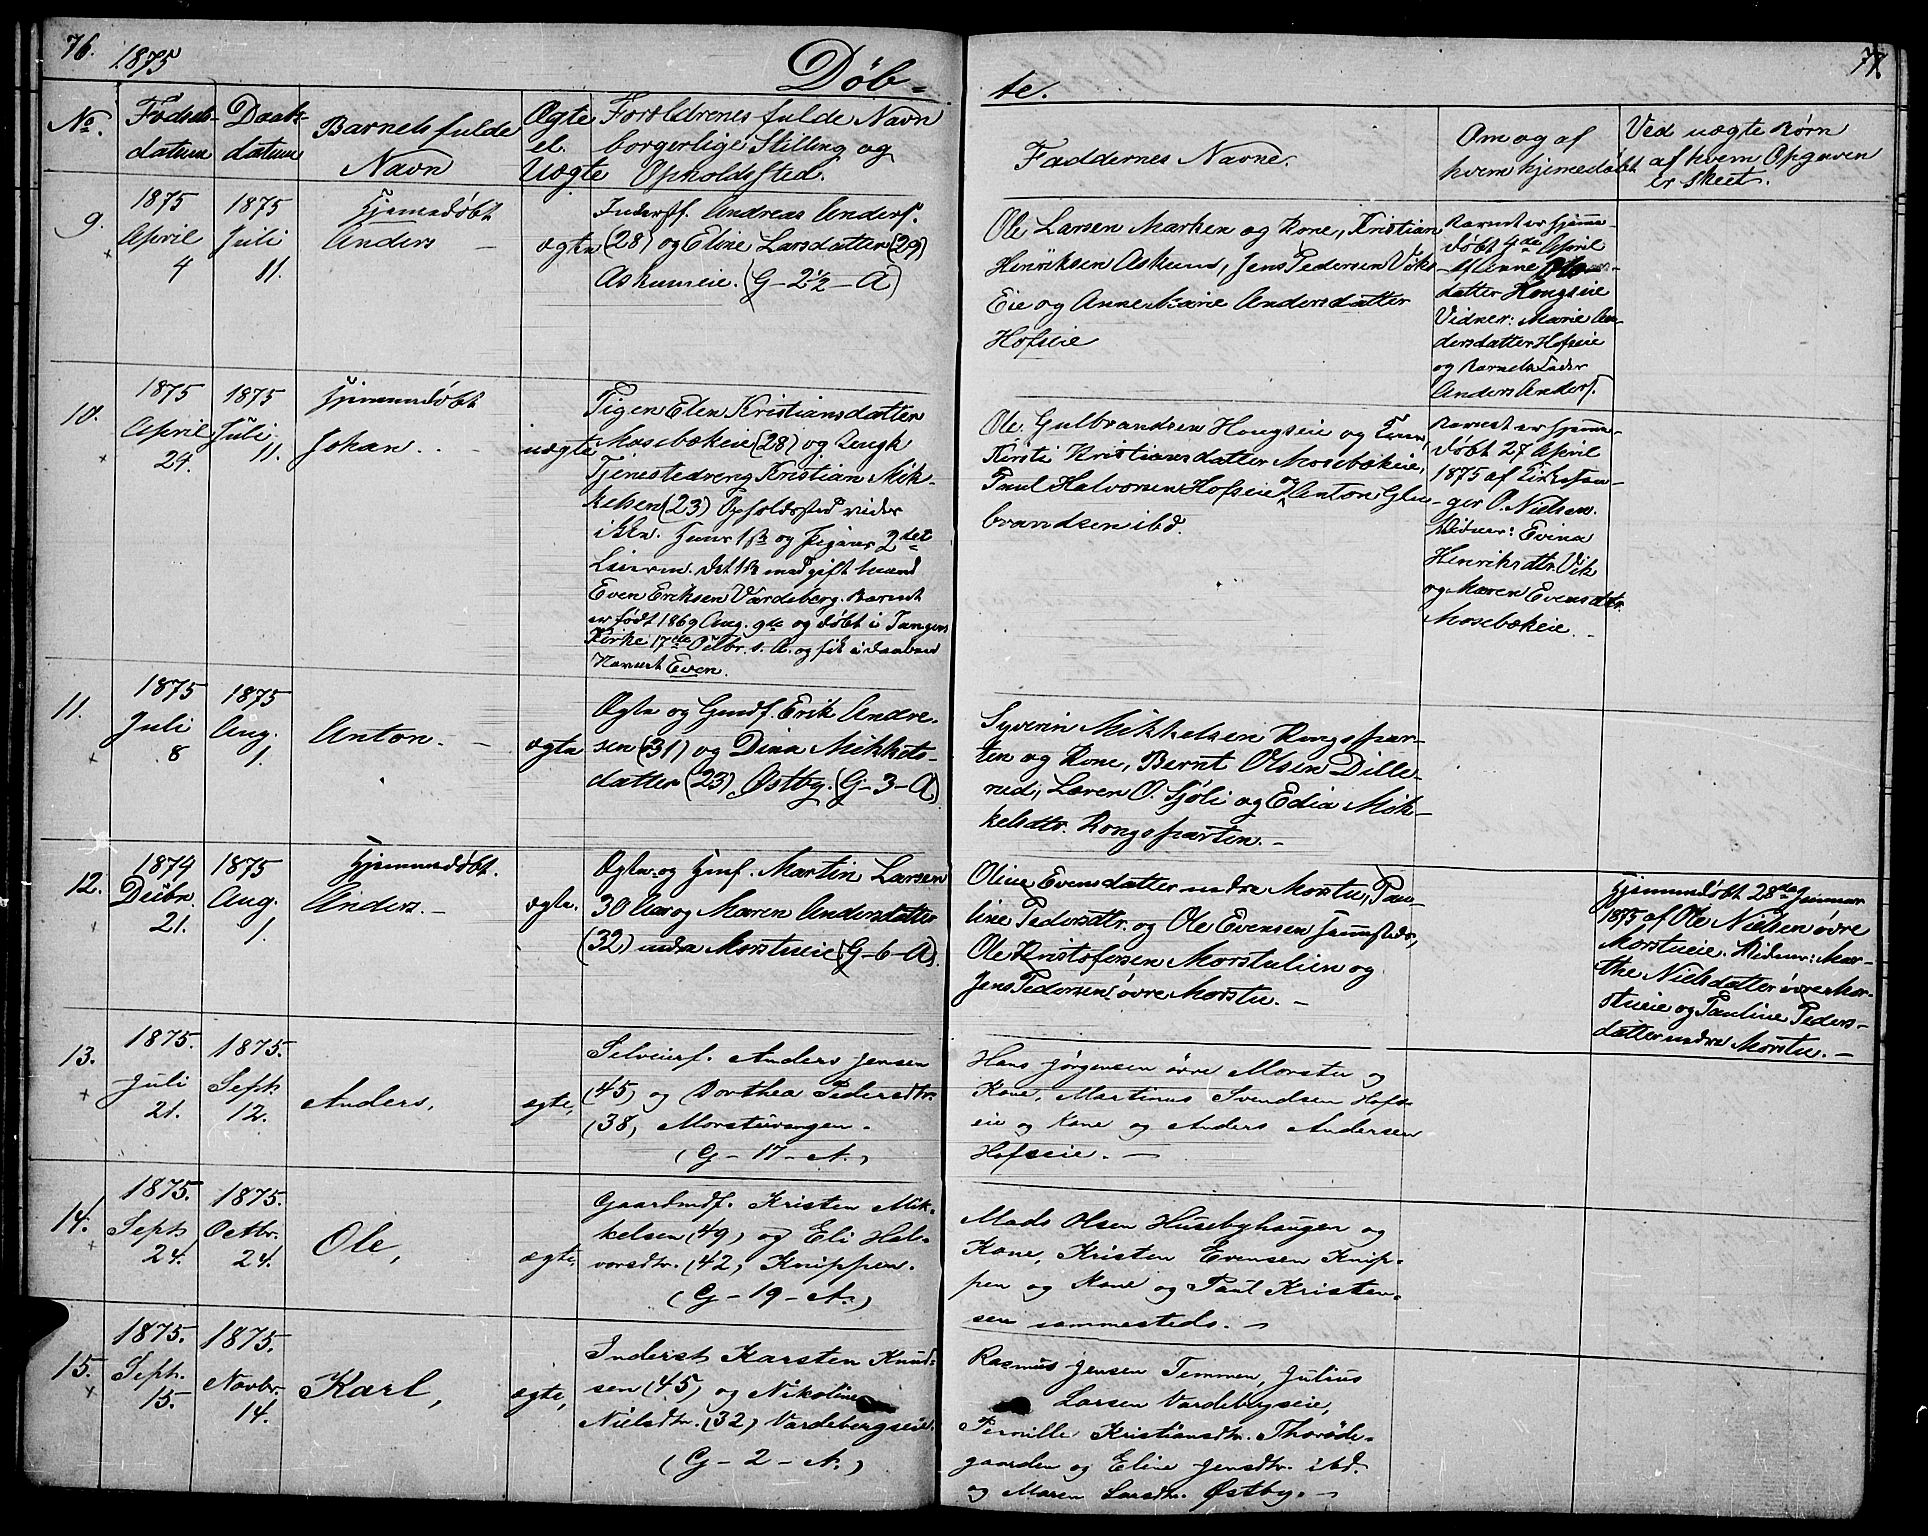 76.
1875
Døb-
te.
77.
No.
Fødsels-
datum
Daabs-
datum
Barnets fulde
Navn
Ægte
el.
Uægte
Forældrenes fulde Navn
borgerlige Stilling og
Opholdssted.
Faddernes Navne.
Om og af
hvem hjemedøbt
Ved uægte Børn
af hvem Opgaven
er skeet.
9.
1875
April
4
1875
Juli
11.
Hjemmedøbt
Anders
ægte
Inderstf. Andreas Anders.
(28) og Eline Larsdatter (29)
Askumeie. (G-2½-A)
Ole Larsen Marken og Kone, Kristian
Henriksen Askum, Jens Pedersen Viks
Eie og Anne Marie Andersdatter
Hofseie
Barnet er hjemme-
døbt 4de April
datter Hongseie
Vidner: Marie An-
dersdatter Hofseie
og Barnets Fader
Anders Anders.
10.
1875
April
24.
1875
Juli
11.
Hjemmedøbt
Johan.
uægte
Pigen Elen Kristiansdatter
Mosebækeie (28) og Ungk
Tjenestedreng Kristian Mik-
kelsen (23) Opholdssted vides
ikke. Hans 1ste og Pigens 2det
Leierm. Det 1ste med gift Mand
Even Eriksen Vardeberg. Barnet
er født 1869 Aug. 9de og døbt i Tangens
Kirke 17de Octbr. s. A. og fik i Daaben
Navnet Even.
Ole Gulbrandsen Hongseie og Kone,
Kirsti Kristiansdatter Mosebækeie,
Paul Halvorsen Hofseie og Anton Gul-
brandsen ibd.
Barnet er hjemme-
døbt 27 April
1875 af Kirkesan-
ger O. Nielsen.
Vidner: Evina
Henriksdtr. Vik
og Maren Evensdtr.
Mosebækeie.
11.
1875
Juli
8
1875
Aug.
1.
Anton.
ægte
Ægte og Gmdf. Erik Andre-
sen (31) og Dina Mikkels-
datter (23) Østby. (G-3-A)
Syverin Mikkelsen Rongspar-
ten og Kone, Bernt Olsen Dille-
rud, Laren O. Sjøli og Edia Mik-
kelsdtr. Rongsparten.
12.
1874
Decbr.
21.
1875
Aug.
1.
Hjemmedøbt.
Anders.
ægte.
Ægte og Hmf. Martin Larsen
30 Aar og Maren Andersdatter
(32) nedre Morstueie (G-6-A).
Oline Evensdatter nedre Morstu, Pau-
line Pedersdtr. og Ole Evensen sammesteds,
Ole Kristofersen Morstulien og
Jens Pedersen øvre Morstu.
Hjemmedøbt 28de Januar
1875 af Ole Nielsen øvre
Morstueie. Vidner: Mar-
the Nielsdatter øvre Mor-
stueie og Pauline Peders-
datter nedre Morstu.
13.
1875.
Juli
21.
1875.
Sept.
12.
Anders,
ægte,
Selveierf. Anders Jensen
(45) og Dorthea Pedersdtr.
(38) Morstuvangen.
(G-17-A.)
Hans Jørgensen øvre Morstu og
Kone, Martinus Svendsen Hofs-
eie og Kone og Anders Andersen
Hofseie.
14.
1875.
Sept.
24.
1875.
Octbr.
24.
Ole,
ægte,
Gaardmdf. Kristen Mik-
kelsen (49) og Eli Hal-
vorsdtr. (42) Knippen.
(G-19-A.)
Mads Olsen Husebyhaugen og
Kone, Kristen Evensen Knip-
pen og Kone og Paul Kristen-
sen sammesteds.
15.
1875.
Sept.
15.
1875.
Novbr.
14.
Karl,
ægte,
Inderst Karsten Knud-
sen (45) og Nikoline
Nielsdtr. (32) Vardebergseie.
(G-2-A.)
Rasmus Jensen Temmen, Julius
Larsen Vardebergseie,
Pernille Kristiansdtr. Thorøde-
gaarden og Eline Jensdtr. ibd.
og Maren Larsdtr. Østby.